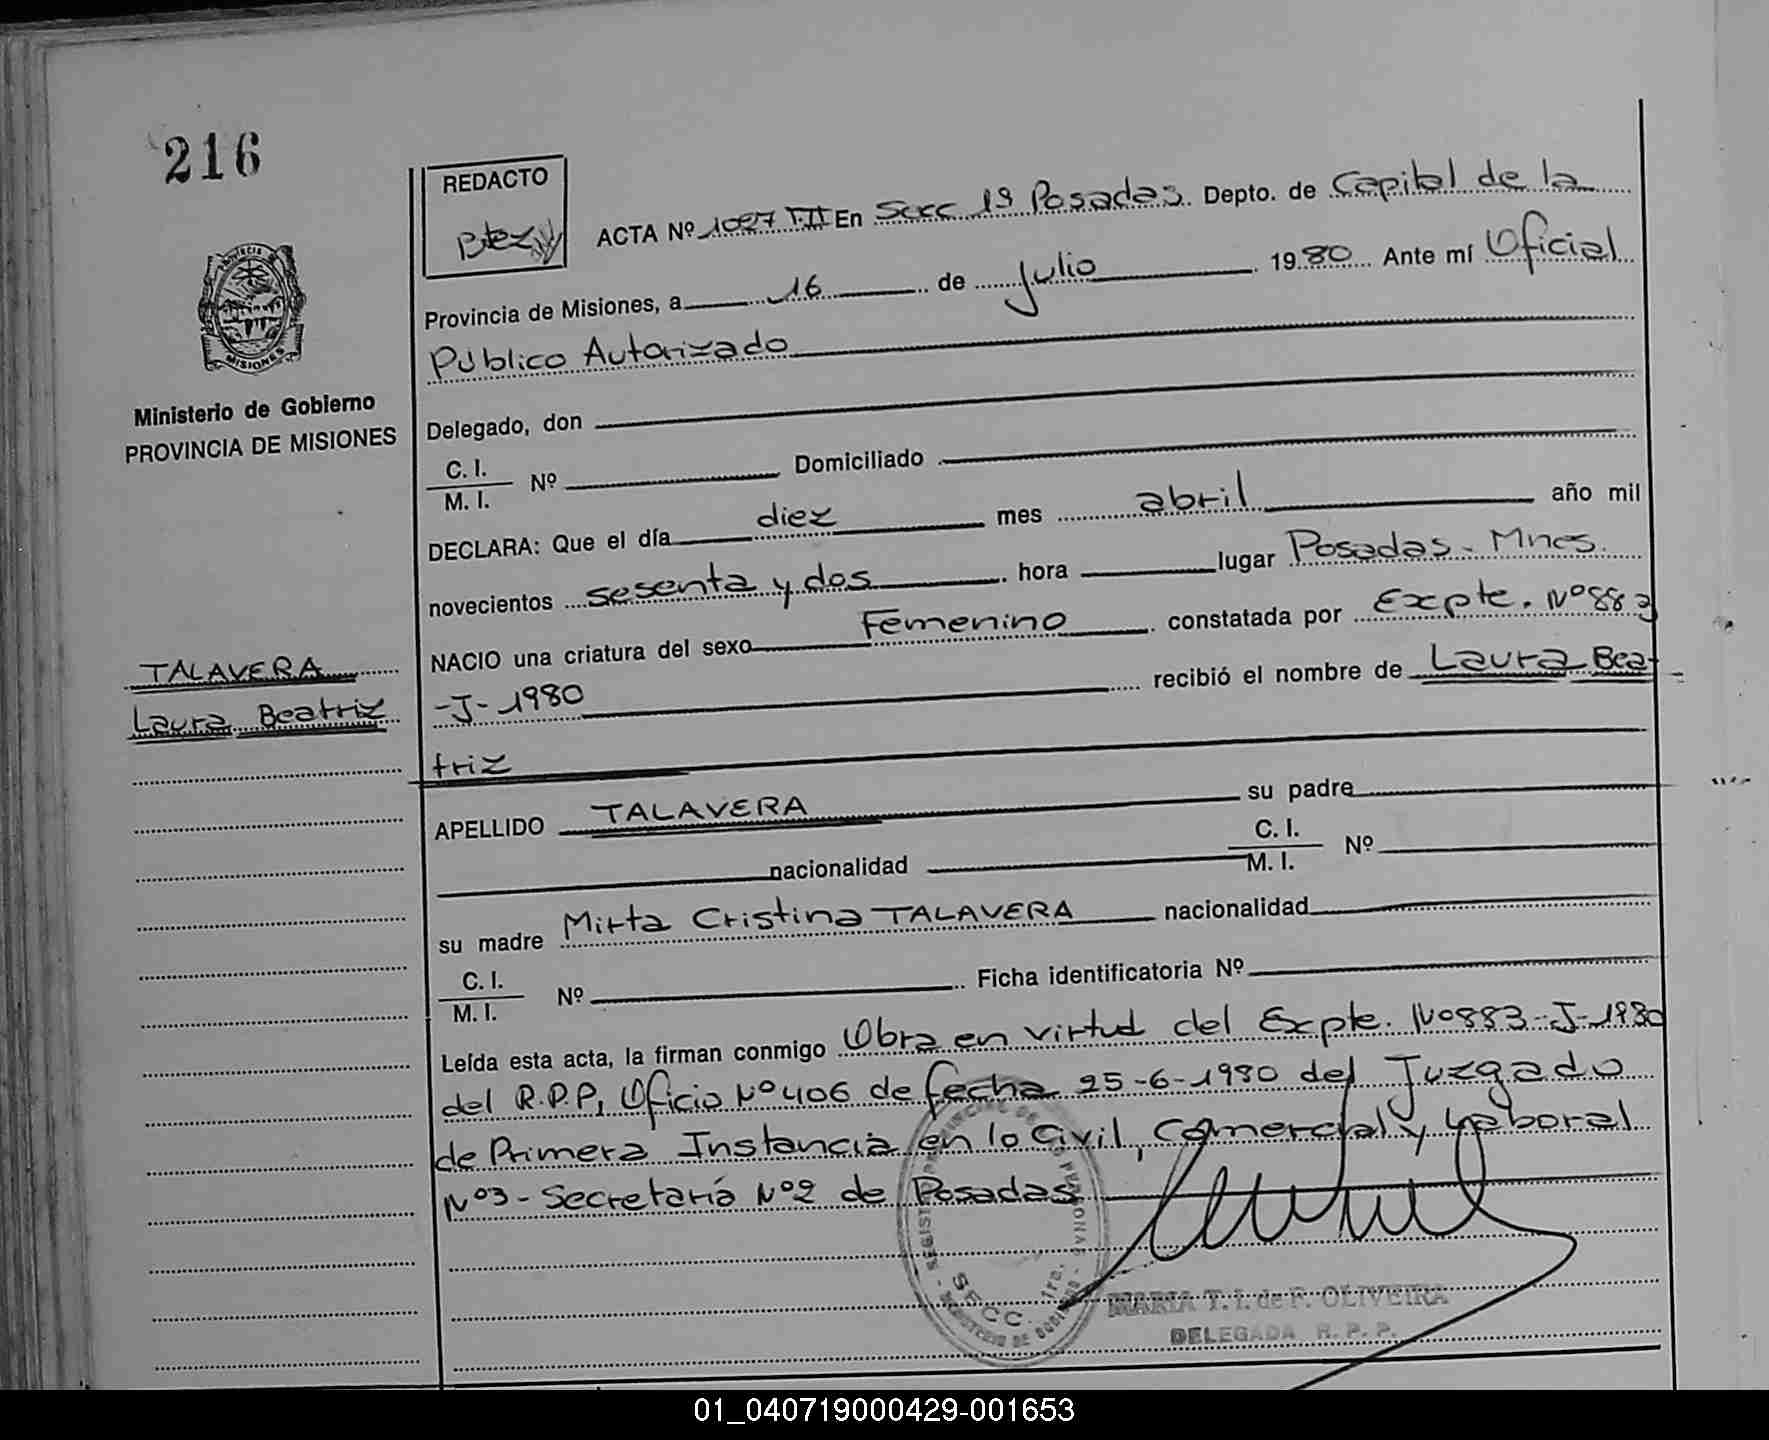 216
REDACTO
ACTA Nº 1027 T.II En Secc 1ª Posadas Depto. de Capital de la
Provincia de Misiones, a 16 de Julio 1980 Ante mí Oficial
Público Autorizado
PROVINCIA
MISIONES
Ministerio de Gobierno
PROVINCIA DE MISIONES
Delegado, don
C. I.
M. I.
Nº Domiciliado
DECLARA: Que el día diez mes abril año mil
novecientos sesenta y dos hora lugar Posadas - Mnes.
NACIO una criatura del sexo Femenino constatada por Expte. Nº 883
-J-1980 recibió el nombre de Laura Bea-
triz
TALAVERA
Laura Beatriz
APELLIDO TALAVERA su padre
nacionalidad C. I. M. I. Nº
su madre Mirta Cristina TALAVERA nacionalidad
C. I.
M. I.
Nº Ficha identificatoria Nº
Leída esta acta, la firman conmigo Obra en virtud del Expte. Nº 883-J-1980
del R.P.P, Oficio Nº 406 de fecha 25-6-1980 del Juzgado
de Primera Instancia en lo Civil, Comercial y Laboral
Nº 3 - Secretaría Nº 2 de Posadas
SECC. 1ra.
MARIA T. I. de F. OLIVEIRA
DELEGADA R. P. P.
01_040719000429-001653